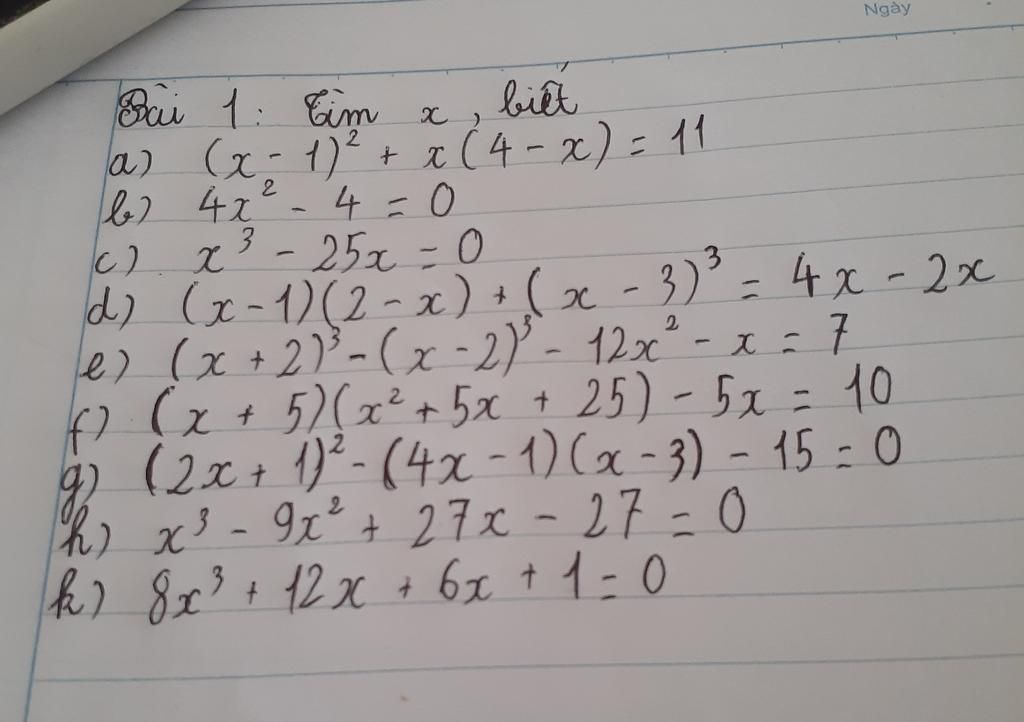 Ngày
Bài 1: Tìm x, biết
a) (x - 1)² + x(4 - x) = 11
b) 4x² - 4 = 0
c) x³ - 25x = 0
d) (x - 1)(2 - x) + (x - 3)³ = 4x - 2x
e) (x + 2)³ - (x - 2)³ - 12x² - x = 7
f) (x + 5)(x² + 5x + 25) - 5x = 10
g) (2x + 1)² - (4x - 1)(x - 3) - 15 = 0
h) x³ - 9x² + 27x - 27 = 0
k) 8x³ + 12x + 6x + 1 = 0